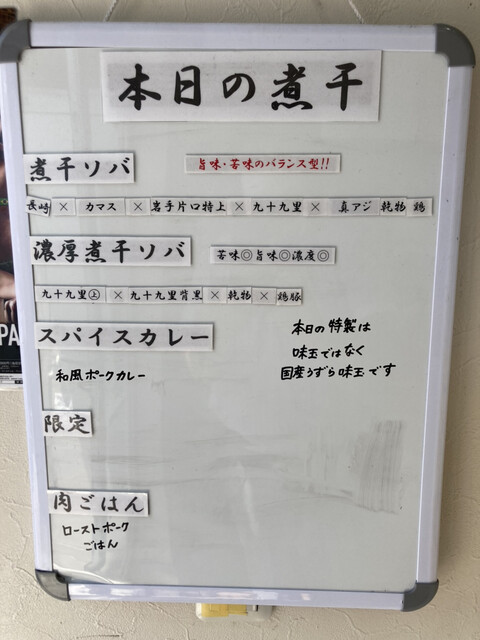 本日の煮干
煮干ソバ
旨味・苦味のバランス型!!
長崎 × カマス × 岩手片口特上 × 九十九里 × 真アジ 乾物 鶏
濃厚煮干ソバ
苦味◎旨味◎濃度◎
九十九里㊤ × 九十九里背黒 × 乾物 × 鶏豚
スパイスカレー
和風ポークカレー
本日の特製は
味玉ではなく
国産うずら味玉です
限定
肉ごはん
ローストポーク
ごはん
PA